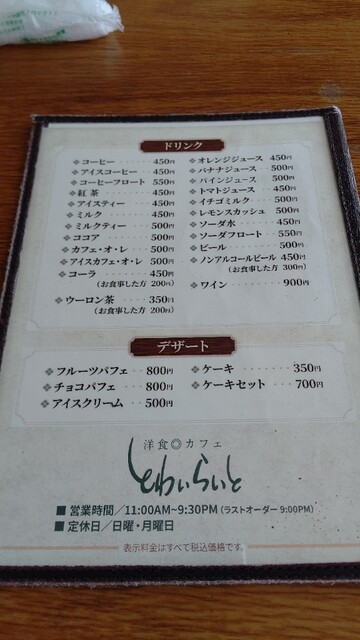 ドリンク
コーヒー ‥‥ 450円
アイスコーヒー ‥ 450円
コーヒーフロート 550円
紅茶 ‥‥‥ 450円
アイスティー ‥ 450円
ミルク ‥‥‥ 450円
ミルクティー ‥ 500円
ココア ‥‥‥ 500円
カフェ・オ・レ ‥ 500円
アイスカフェ・オ・レ 500円
コーラ ‥‥‥ 450円
(お食事した方 200円)
ウーロン茶 ‥‥ 350円
(お食事した方 200円)
オレンジジュース 450円
バナナジュース 500円
パインジュース 500円
トマトジュース 450円
イチゴミルク ‥ 500円
レモンスカッシュ 500円
ソーダ水 ‥‥ 450円
ソーダフロート ‥ 550円
ビール ‥‥‥ 500円
ノンアルコールビール 450円
(お食事した方 300円)
ワイン ‥‥‥ 900円
デザート
フルーツパフェ ‥ 800円
チョコパフェ ‥ 800円
アイスクリーム ‥ 500円
ケーキ ‥‥‥ 350円
ケーキセット ‥ 700円
洋食◎カフェ
とわいらいと
■ 営業時間／11:00AM~9:30PM (ラストオーダー 9:00PM)
■ 定休日／日曜・月曜日
表示料金はすべて税込価格です。